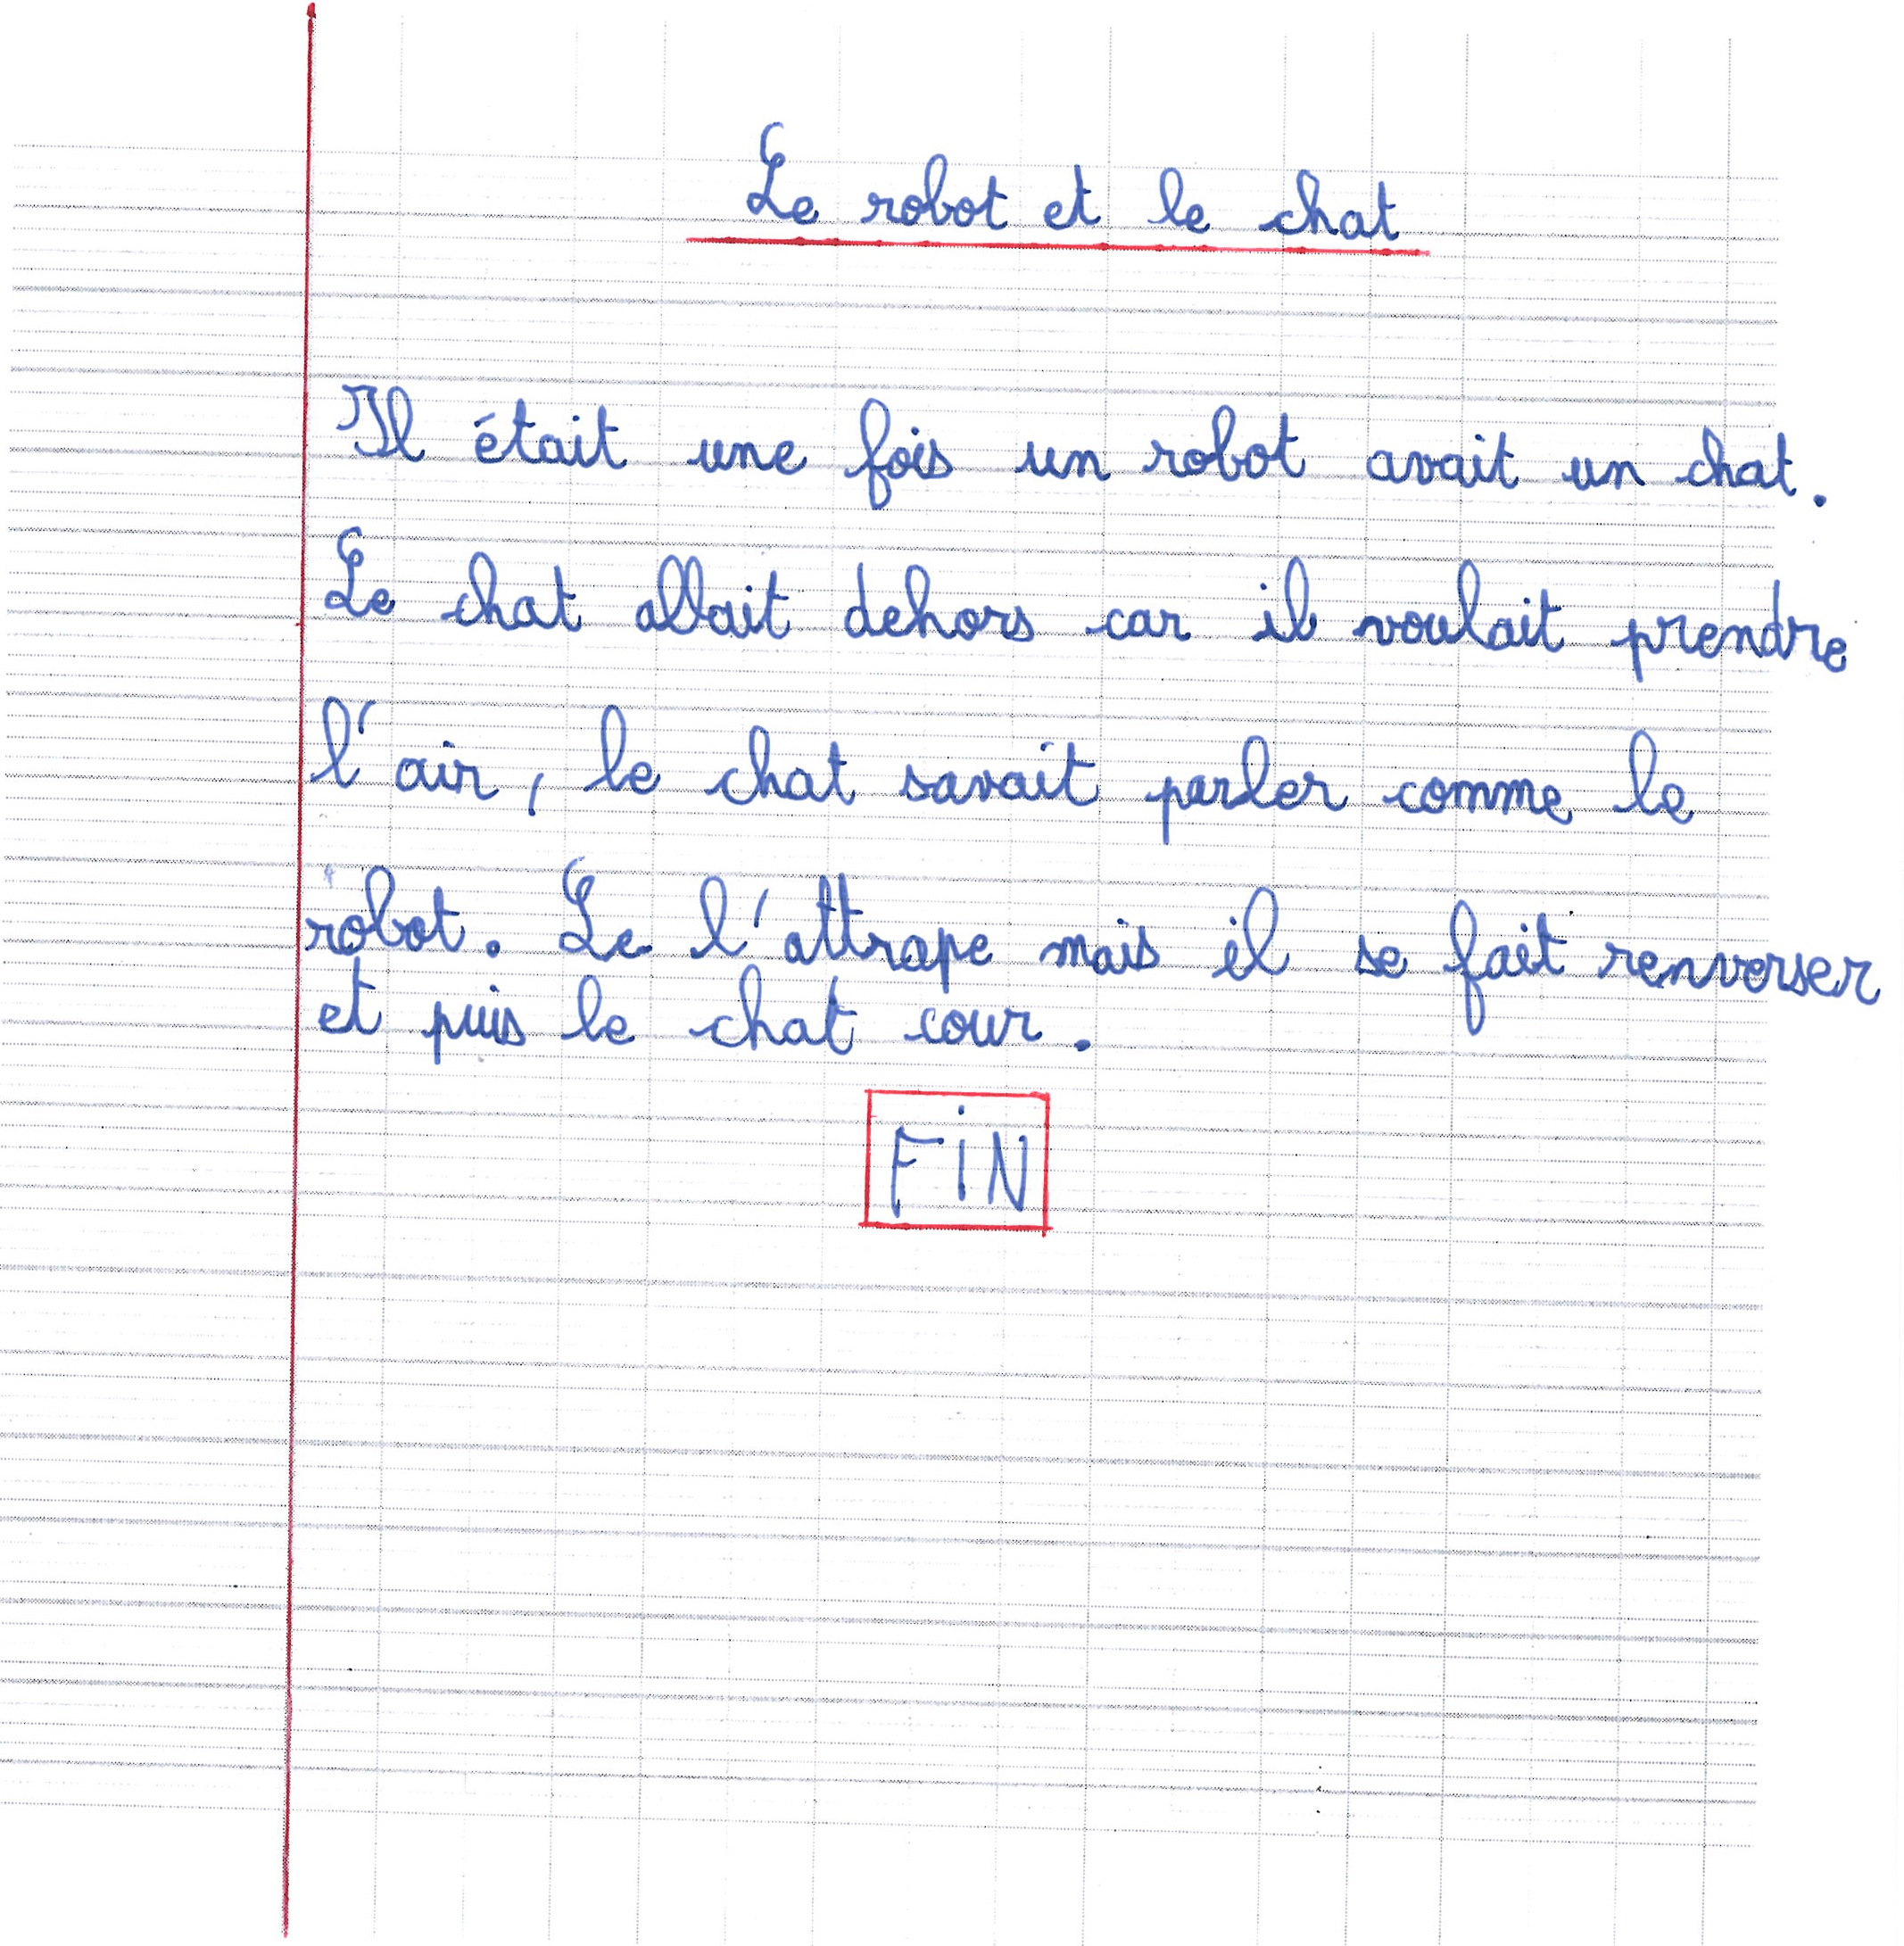 Le robot et le chat
Il était une fois un robot avait un chat.
Le chat allait dehors car il voulait prendre
l'air, le chat savait parler comme le
robot. Le l'attrape mais il se fait renverser
et puis le chat cour.
FIN